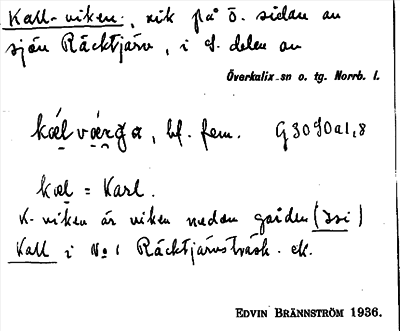 Kall-viken, vik på ö. sidan av
sjön Räcktjärv, i s. delen av
Överkalix sn o. tg. Norrb. l.
bf. fem. G3090a1,8
= Karl.
K-viken är viken nedan gården
Kall i No 1 Räcktjärvsträsk.
EDVIN BRÄNNSTRÖM 1936.